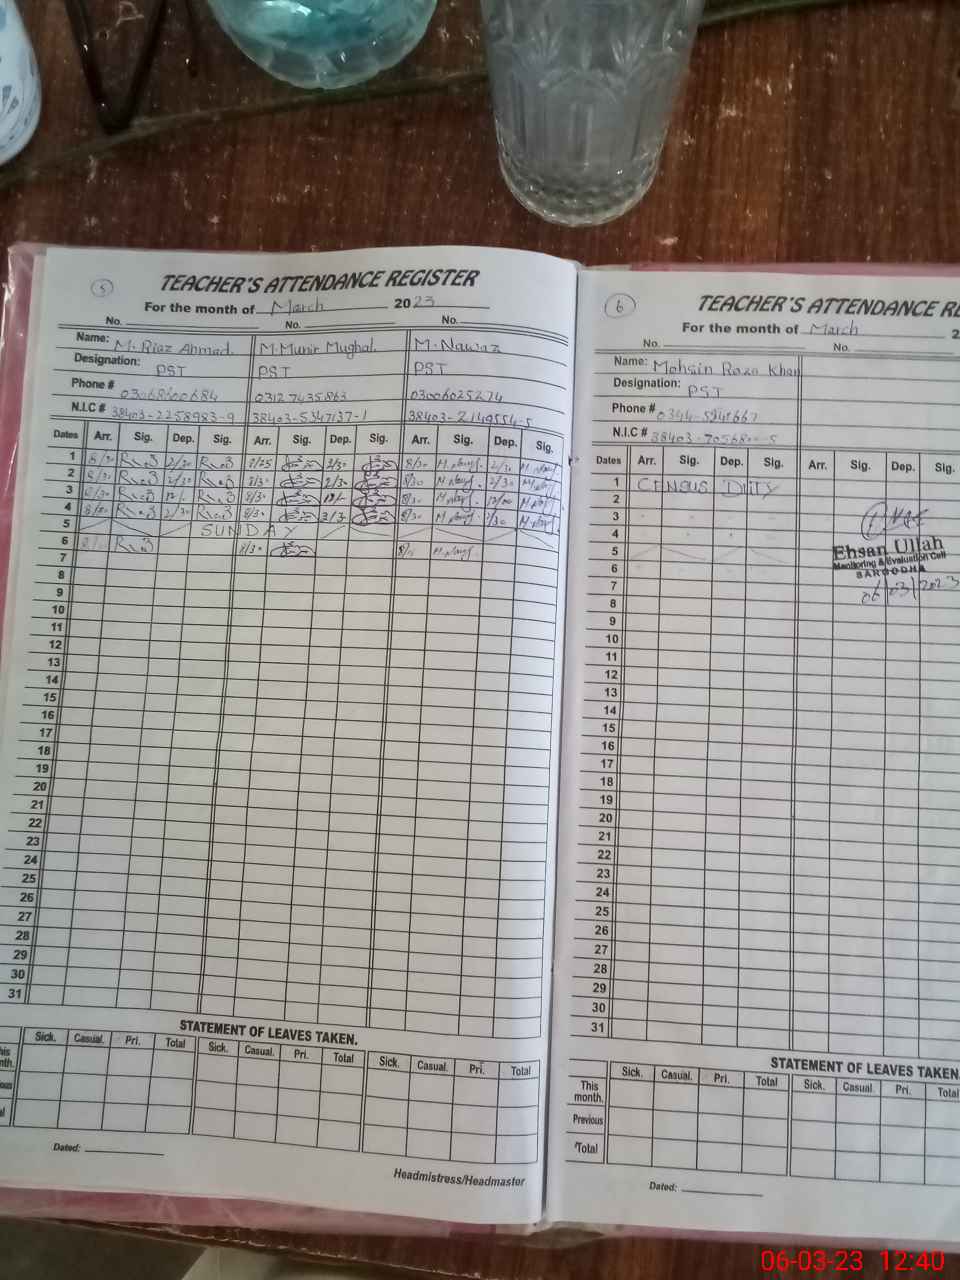 5
TEACHER'S ATTENDANCE REGISTER
For the month of March 2023
No. No. No.
Name: M. Riaz Ahmad. M. Munir Mughal. M. Nawaz
Designation: PST PST PST
Phone # 03068600684 03127435863 03006025274
N.I.C # 38403-2258983-9 38403-5347137-1 38403-2149554-5
Dates Arr. Sig. Dep. Sig. Arr. Sig. Dep. Sig. Arr. Sig. Dep. Sig.
1 8/30 2/30 8/25 2/30 8/30 M. Nawaz. 2/30 M. Nawaz
2 8/30 2/30 8/30 2/30 8/30 M. Nawaz. 2/30
3 8/30 12/- 8/30 12/- 8/30 M. Nawaz. 12/00 M. Nawaz
4 8/30 2/30 8/30 8/30 M. Nawaz. 2/30 M. Nawaz
5 SUNDAY
6 8/30 M. Nawaz.
7
8
9
10
11
12
13
14
15
16
17
18
19
20
21
22
23
24
25
26
27
28
29
30
31
STATEMENT OF LEAVES TAKEN.
Sick. Casual. Pri. Total Sick. Casual. Pri. Total Sick. Casual. Pri. Total
Dated:
Headmistress/Headmaster
6
TEACHER'S ATTENDANCE RE
For the month of March 2
No. No.
Name: Mohsin Raza Khan
Designation: PST
Phone #
N.I.C #
Dates Arr. Sig. Dep. Sig. Arr. Sig. Dep. Sig.
1 CENSUS DUTY
2
3
4
5
6
7
Ehsan Ullah
Monitoring & Evaluation Cell
SARGODHA
06/03/2023
8
9
10
11
12
13
14
15
16
17
18
19
20
21
22
23
24
25
26
27
28
29
30
31
STATEMENT OF LEAVES TAKEN.
Sick. Casual. Pri. Total Sick. Casual. Pri. Total
This month.
Previous
Total
Dated:
06-03-23 12:40